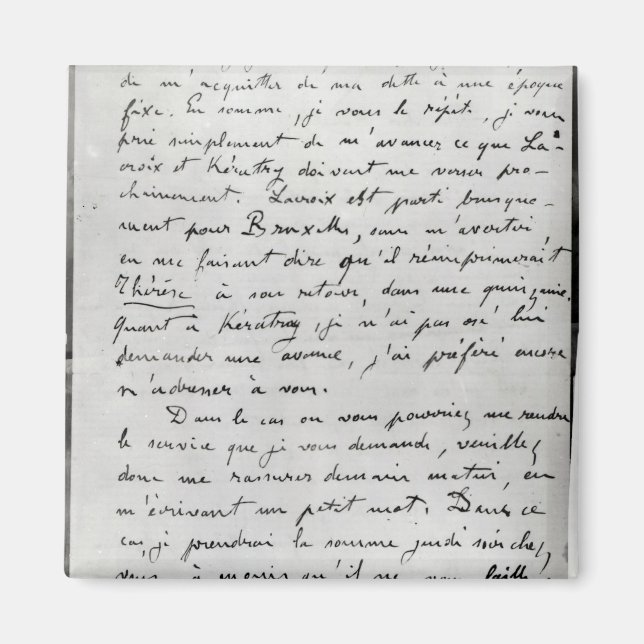 de m'acquitter de ma dette à une époque
fixe. En somme, je vous le répète, je vous
prie simplement de m'avancer ce que La-
croix et Kératry doivent me verser pro-
chainement. Lacroix est parti brusque-
ment pour Bruxelles, sans m'avertir,
en me faisant dire qu'il réimprimerait
Thérèse à son retour, dans une quinzaine.
Quant à Kératry, je n'ai pas osé lui
demander une avance, j'ai préféré encore
m'adresser à vous.
Dans le cas où vous pourriez me rendre
le service que je vous demande, veuillez
donc me rassurer demain matin, en
m'écrivant un petit mot. Dans ce
cas, je prendrai la somme jeudi soir chez
vous, à moins qu'il ne vous faille